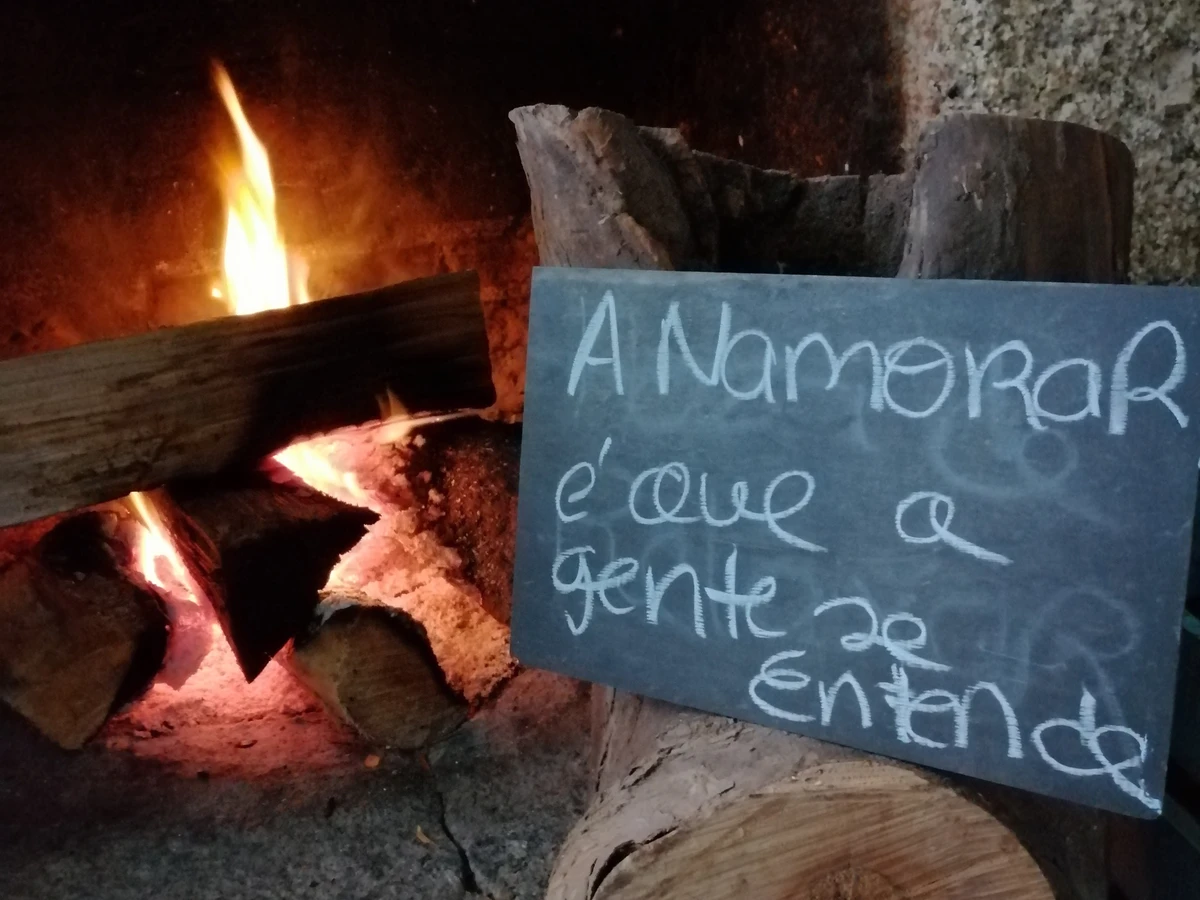 A NamoRaR
é que a
gente se
Entende